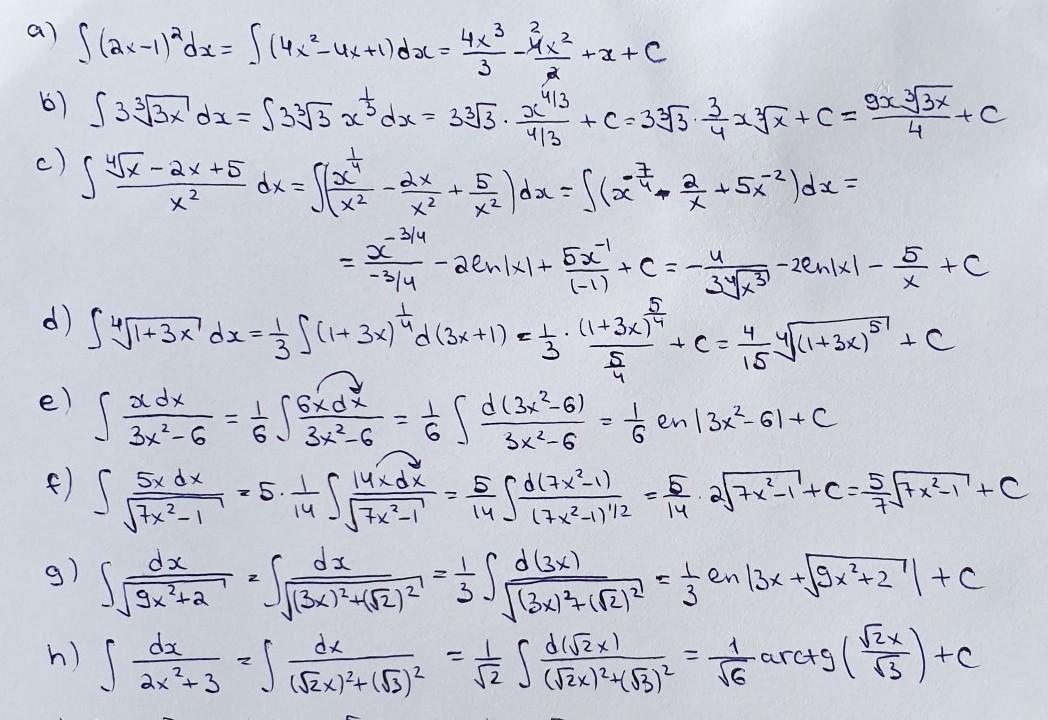 a) ∫(2x-1)²dx = ∫(4x²-4x+1)dx = 4x³/3 - 4x²/2 + x + C
b) ∫3∛(3x) dx = ∫3∛3 x^(1/3) dx = 3∛3 · x^(4/3)/(4/3) + C = 3∛3 · 3/4 x∛x + C = 9x∛(3x)/4 + C
c) ∫ (∜x - 2x + 5)/x² dx = ∫(x^(1/4)/x² - 2x/x² + 5/x²)dx = ∫(x^(-7/4) - 2/x + 5x⁻²)dx =
= x^(-3/4)/(-3/4) - 2ln|x| + 5x⁻¹/(-1) + C = -4/(3∜(x³)) - 2ln|x| - 5/x + C
d) ∫∜(1+3x) dx = 1/3 ∫(1+3x)^(1/4) d(3x+1) = 1/3 · (1+3x)^(5/4)/(5/4) + C = 4/15 ∜((1+3x)⁵) + C
e) ∫ xdx/(3x²-6) = 1/6 ∫ 6xdx/(3x²-6) = 1/6 ∫ d(3x²-6)/(3x²-6) = 1/6 ln|3x²-6| + C
f) ∫ 5xdx/√(7x²-1) = 5 · 1/14 ∫ 14xdx/√(7x²-1) = 5/14 ∫ d(7x²-1)/(7x²-1)^(1/2) = 5/14 · 2√(7x²-1) + C = 5/7 √(7x²-1) + C
g) ∫ dx/√(9x²+2) = ∫ dx/√((3x)²+(√2)²) = 1/3 ∫ d(3x)/√((3x)²+(√2)²) = 1/3 ln|3x+√(9x²+2)| + C
h) ∫ dx/(2x²+3) = ∫ dx/((√2x)²+(√3)²) = 1/√2 ∫ d(√2x)/((√2x)²+(√3)²) = 1/√6 arctg(√2x/√3) + C